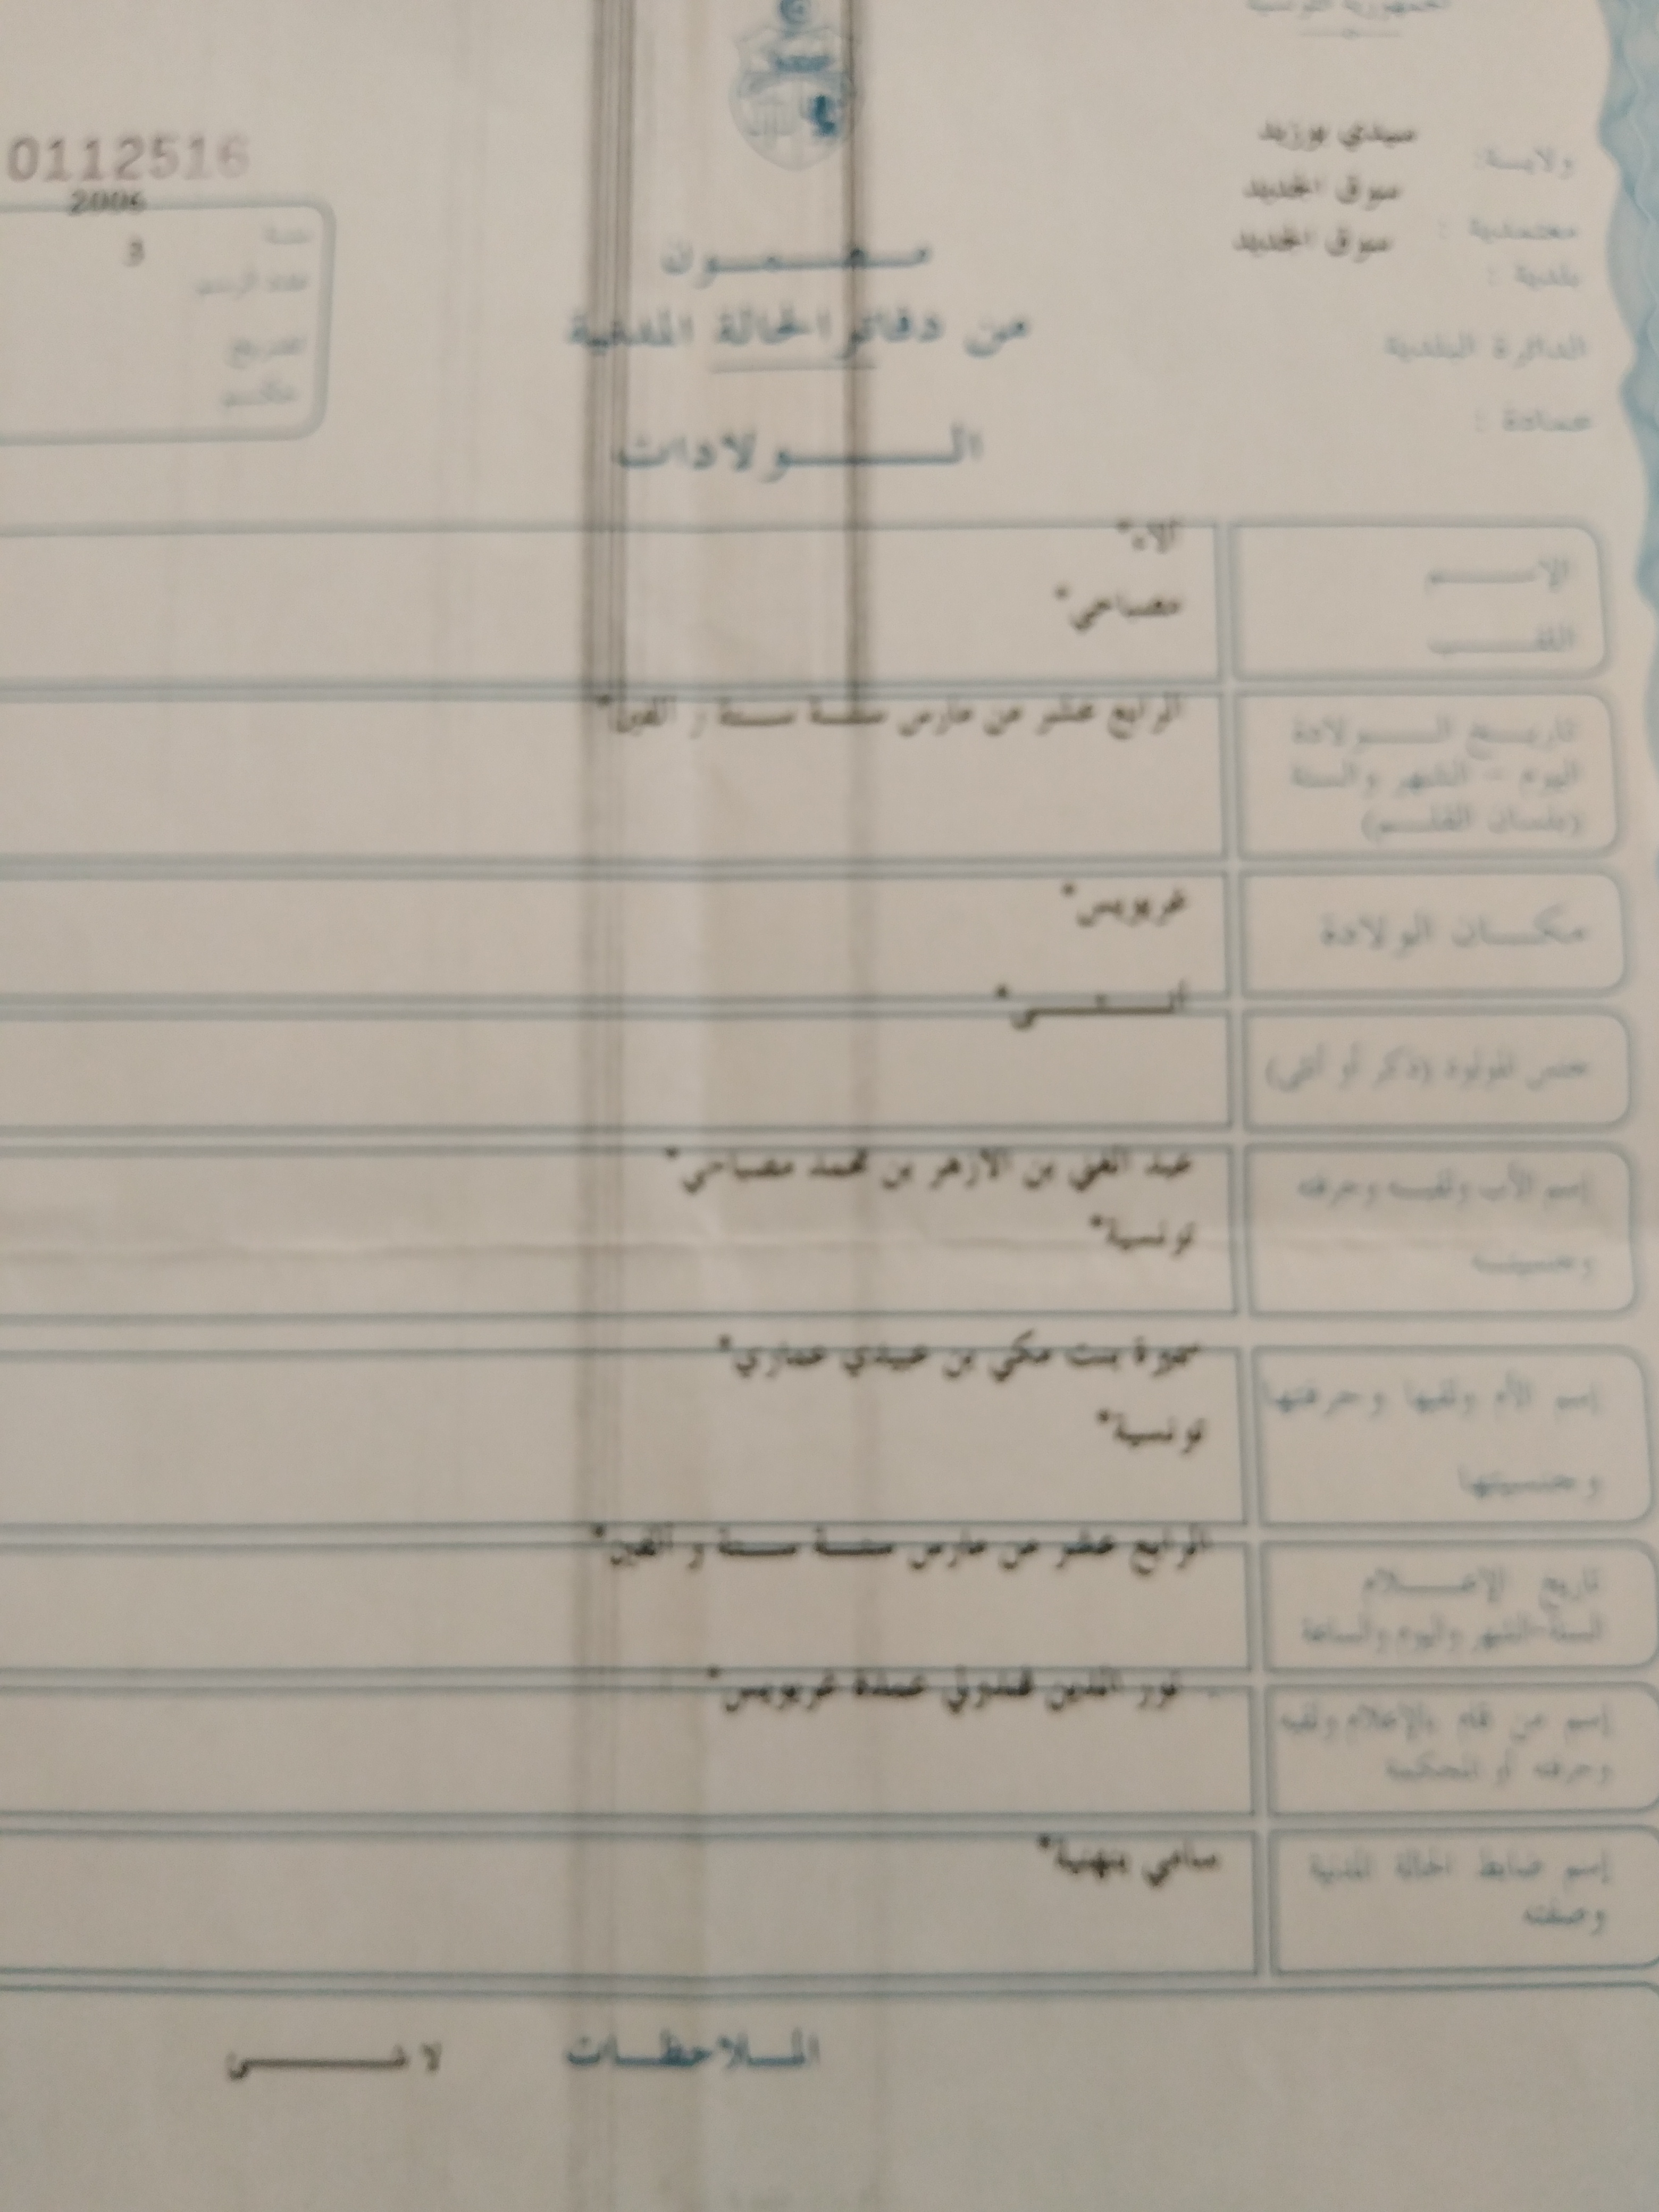 الجمهورية التونسية
ولاية: سيدي بوزيد
معتمدية : سوق الجديد
بلدية : سوق الجديد
الدائرة البلدية
عمادة :
0112516
2006
سنة
3
عدد الرسم
مضمون
من دفاتر الحالة المدنية
الولادات
الإسم
الاء*
اللقب
مصباحي*
تاريخ الولادة
اليوم - الشهر والسنة
(بلسان القلم)
الرابع عشر من مارس سنة ستة و ألفين*
مكان الولادة
غريويس*
جنس المولود (ذكر أو أنثى)
أنثى*
إسم الأب ولقبه وحرفته
عبد الغني بن الازهر بن محمد مصباحي*
وجنسيته
تونسية*
إسم الأم ولقبها وحرفتها
بنت مكي بن عبيدي عماري*
وجنسيتها
تونسية*
تاريخ الإعلام
السنة-الشهر واليوم والساعة
الرابع عشر من مارس سنة ستة و ألفين*
إسم من قام بالإعلام ولقبه
وحرفته أو المحكمة
نور الدين عمدة غريويس*
إسم ضابط الحالة المدنية
وصفته
سامي بنهنية*
الملاحظات
لا شئ